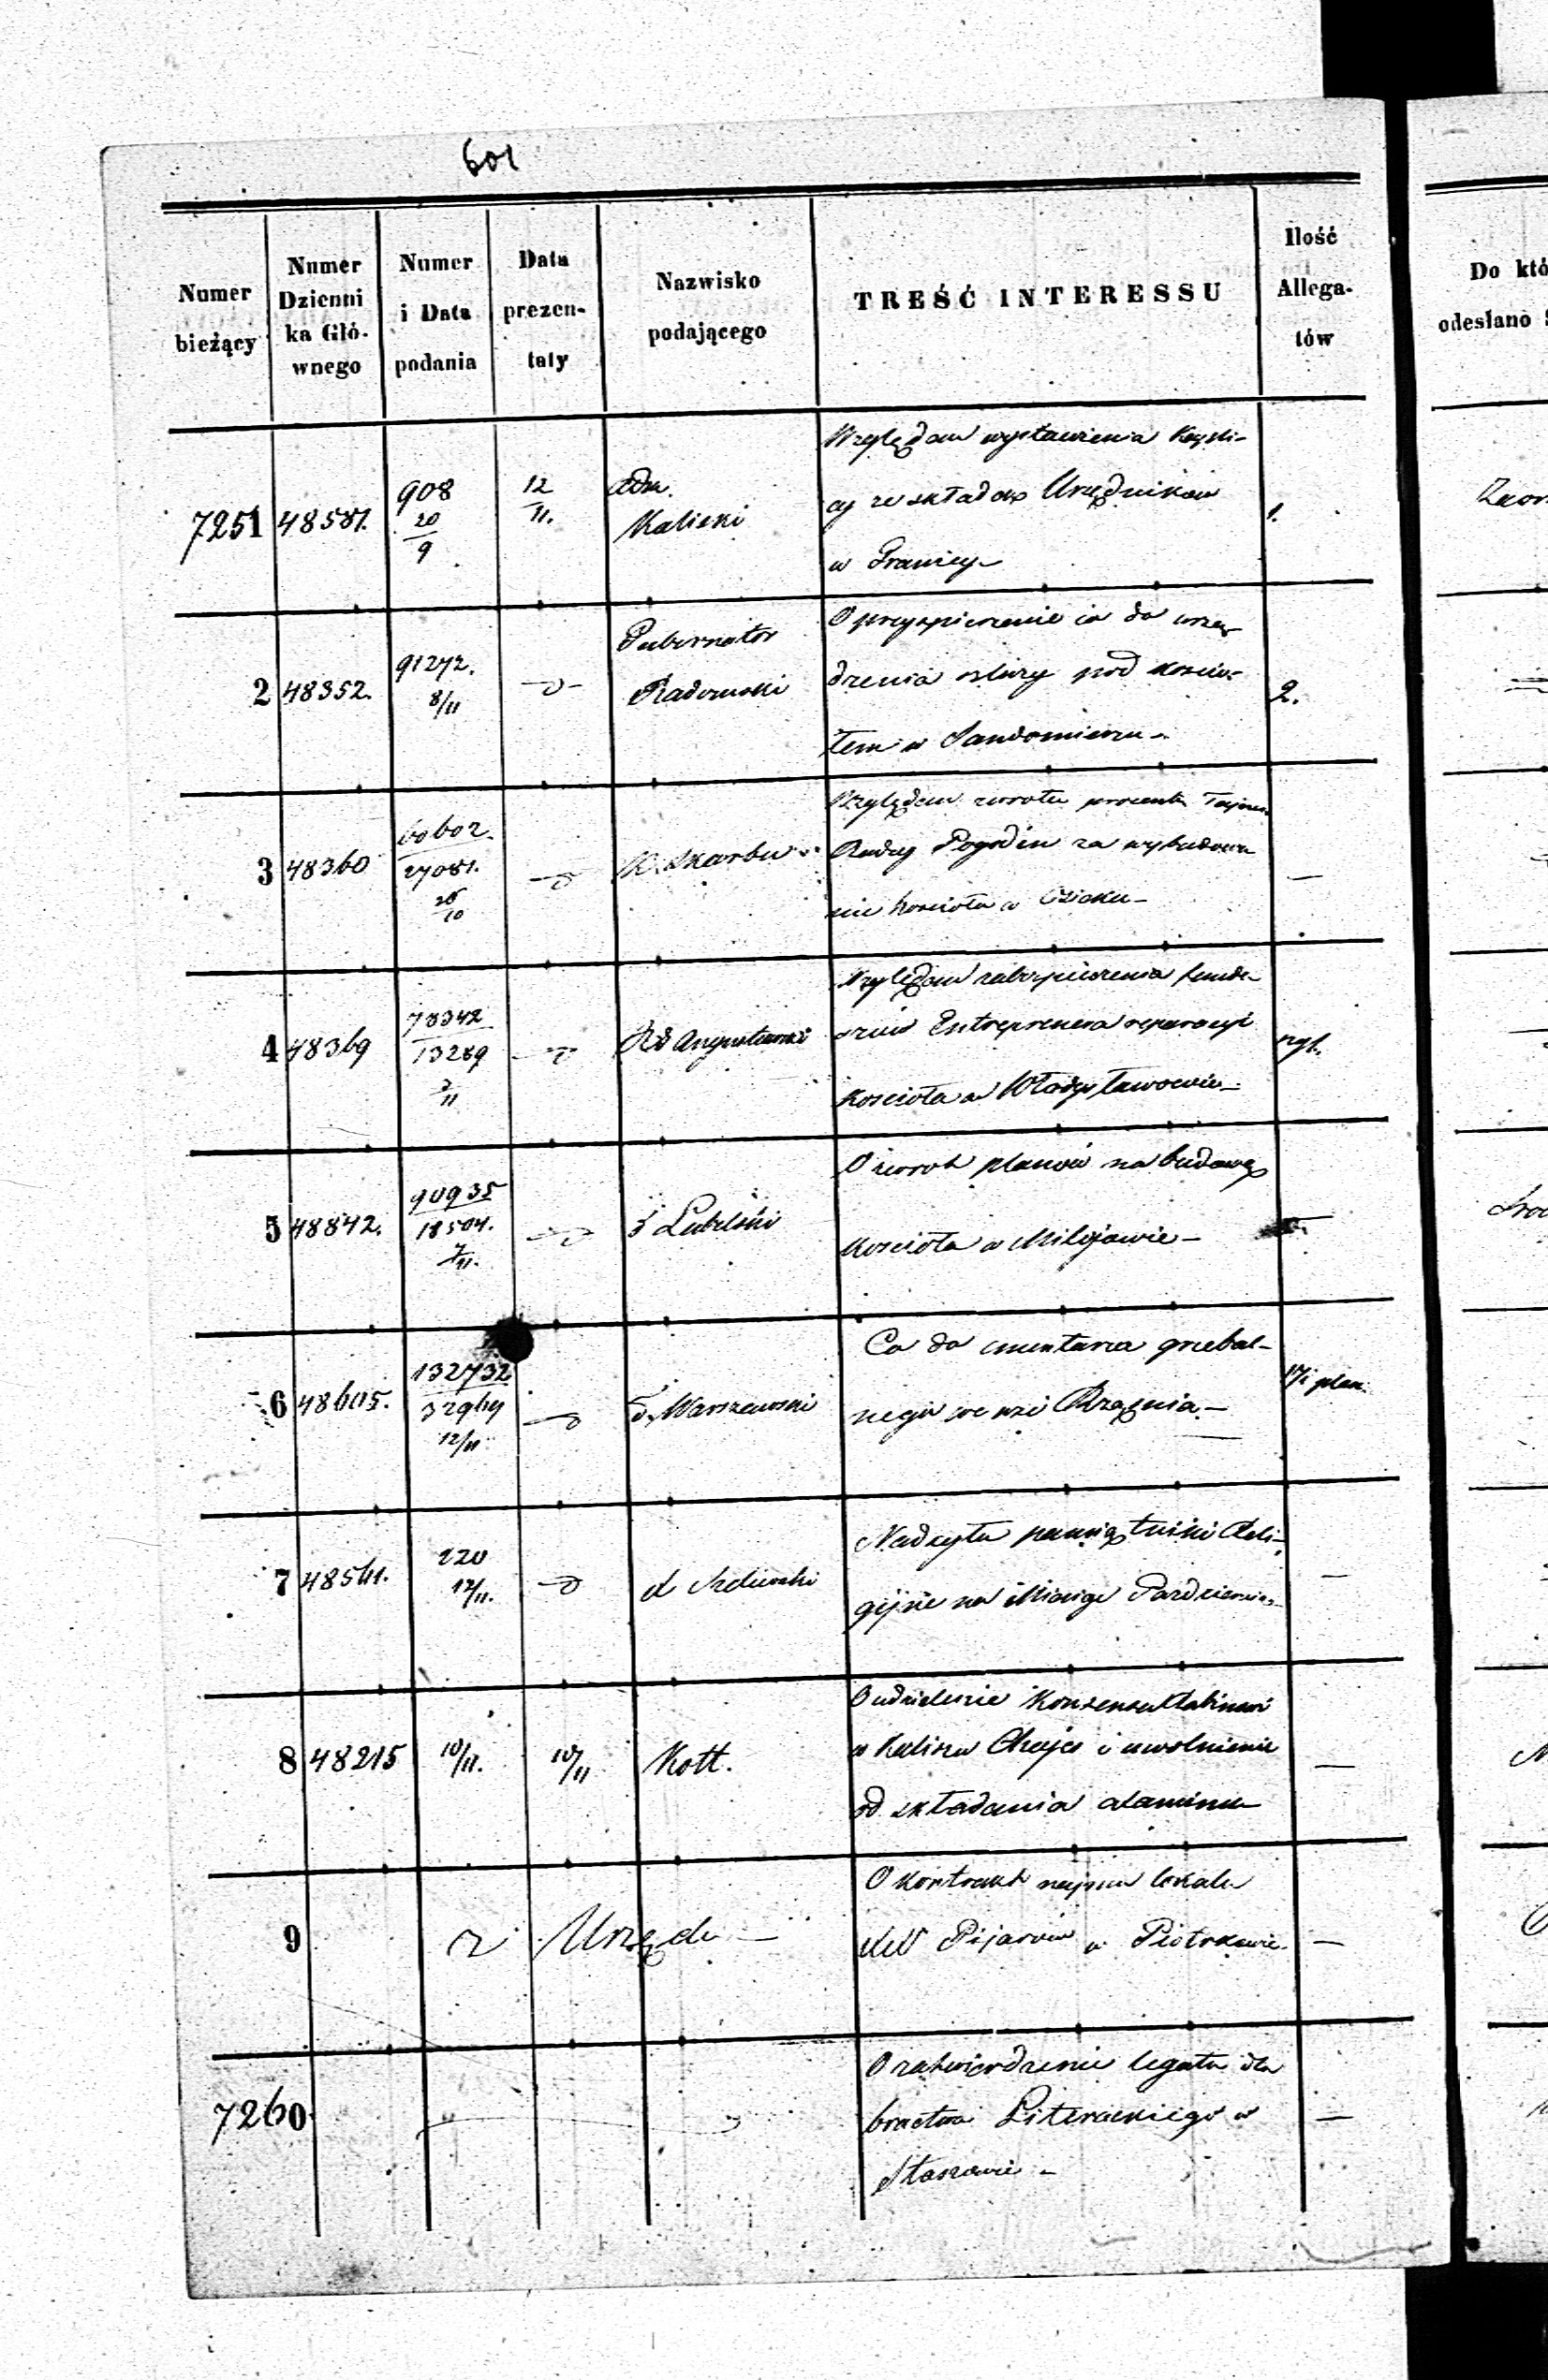 601
Numer bieżący | Numer Dzienni ka Głó- wnego | Numer i Data podania | Data prezen- taty | Nazwisko podającego | TREŚĆ INTERESSU | Ilość Allega- tów | Do któ
odesłano
7251 | 48581. | 908 20/9 | 12/11. | Adm. Kaliski | Względem wystawienia Kapli-
cy ze składek Urzędników | 1.
w Granicy
2 | 48352. | 91272. 8/11 | -d- | Gubernator Radomski | O przyspieszenie co do urzą-
dzenia pod kościo- | 2.
łem w Sandomierzu
3 | 48360 | 60602. 27081. 28/10 | -d | K. Skarbu | Względem zwrotu procentu Tajne.
Radcy Pogodin za wybudowa
nie kościoła w Osieku | —
4 | 48369 | 78342 13289 /11 | -d | Rd Augustowski | Względem zabezpieczenia fundu-
szów Entreprenera reparacyi
kościoła w Władysławowie
5 | 48842. | 90935 18504. 7/11. | -d | d Lubelski | O zwrot planów na budowę
kościoła w Milejowie | —
6 | 48605. | 132732 32964 12/11 | -d | d, Warszawski | Co do cmentarza grzebal-
nego we wsi Rząśnia | i plan.
7 | 48541. | 220 12/11. | -d | | Nadsyła pamiętniki Reli-
gijne na Miesiąc Paździer | —
8 | 48215 | 10/11. | 10/11 | Kott. | O udzielenie Konsensu Rabinowi
w Kaliszu i uwolnienie
od składania | —
9 | z Urzędu — | O kontrakt najmu lokalu
Pijarów w Piotrkowie | —
7260 | O zatwierdzenie legatu dla
bractwa Literackiego w | —
Staszowie